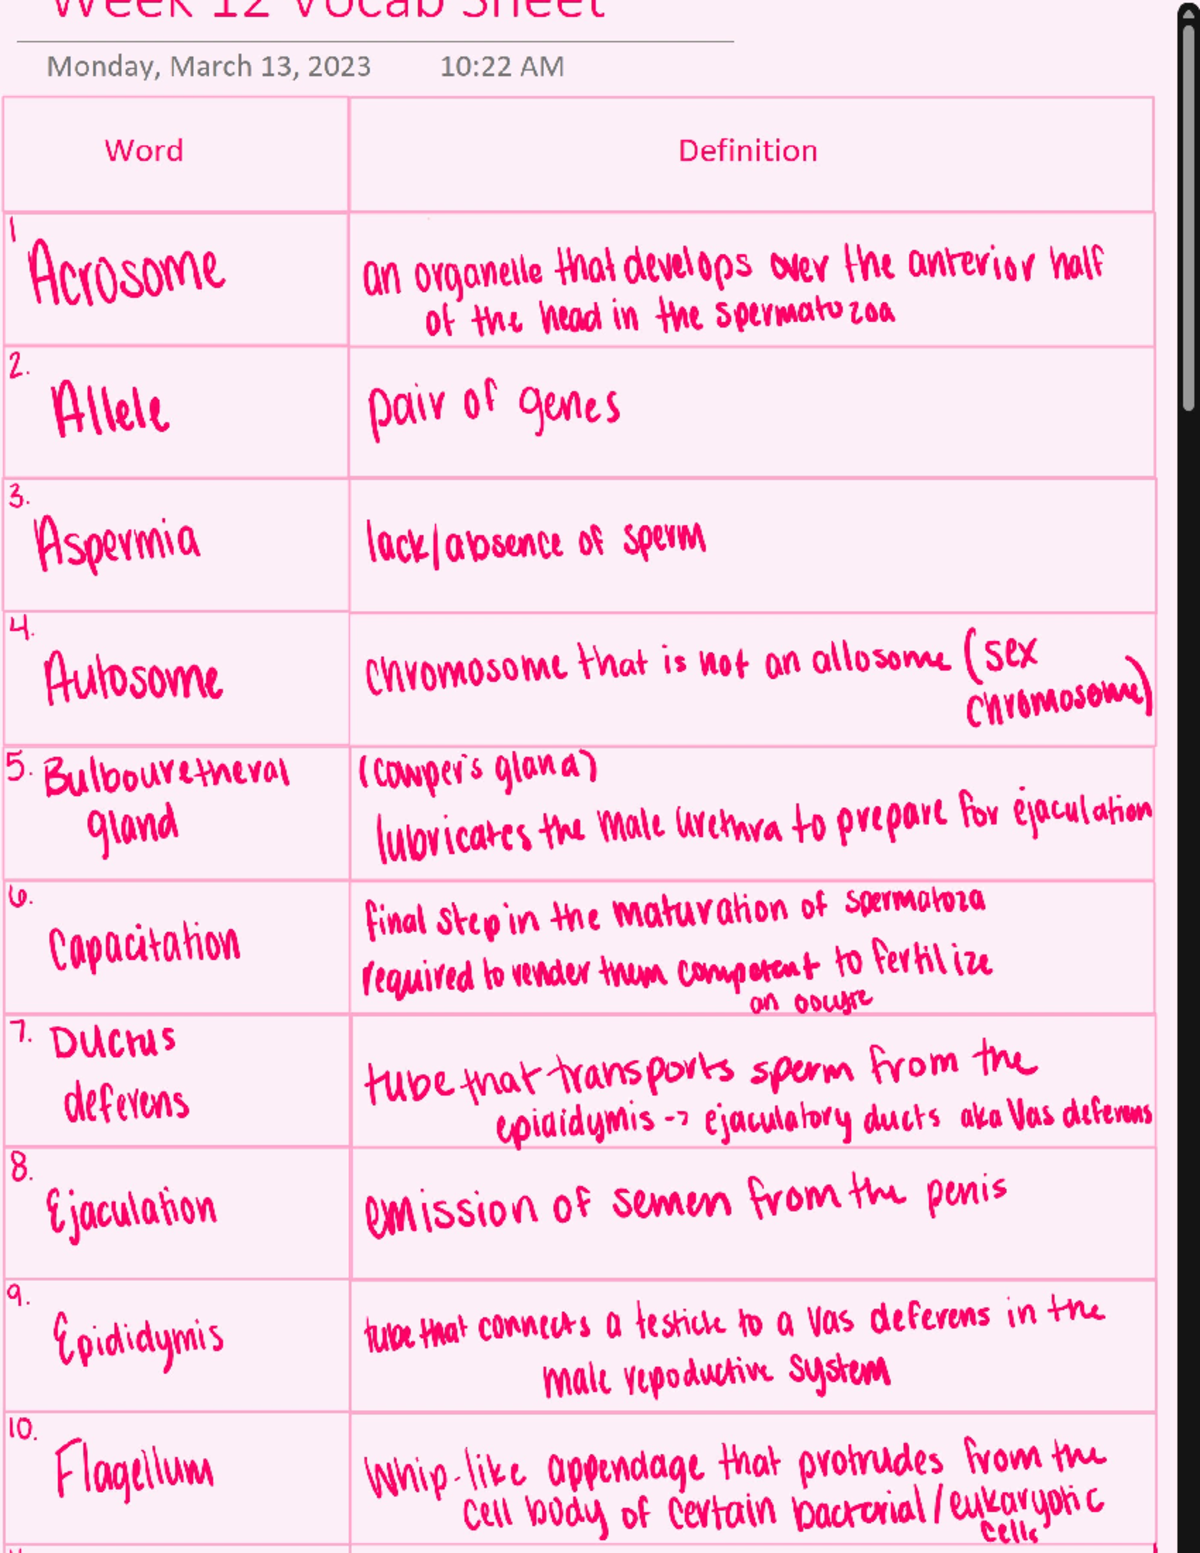 Week 12 Vocab Sheet
Monday, March 13, 2023 10:22 AM
Word Definition
1 Acrosome
an organelle that develops over the anterior half
of the head in the spermatozoa
2. Allele
pair of genes
3. Aspermia
lack/absence of sperm
4. Autosome
chromosome that is not an allosome (sex
chromosome)
5. Bulbouretheral
gland
(cowper's gland)
lubricates the male urethra to prepare for ejaculation
6. Capacitation
final step in the maturation of spermatoza
required to render them competent to fertilize
an oocyte
7. Ductus
deferens
tube that transports sperm from the
epididymis -> ejaculatory ducts aka Vas deferens
8. Ejaculation
emission of semen from the penis
9. Epididymis
tube that connects a testicle to a vas deferens in the
male repoductive system
10. Flagellum
Whip-like appendage that protrudes from the
cell body of certain bacterial/eukaryotic
cells